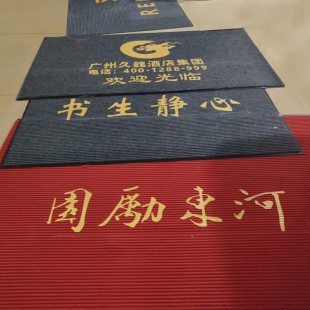 RE
广州久龍酒店集团
电话：400-1288-999
欢迎光临
书生静心
河東勵園